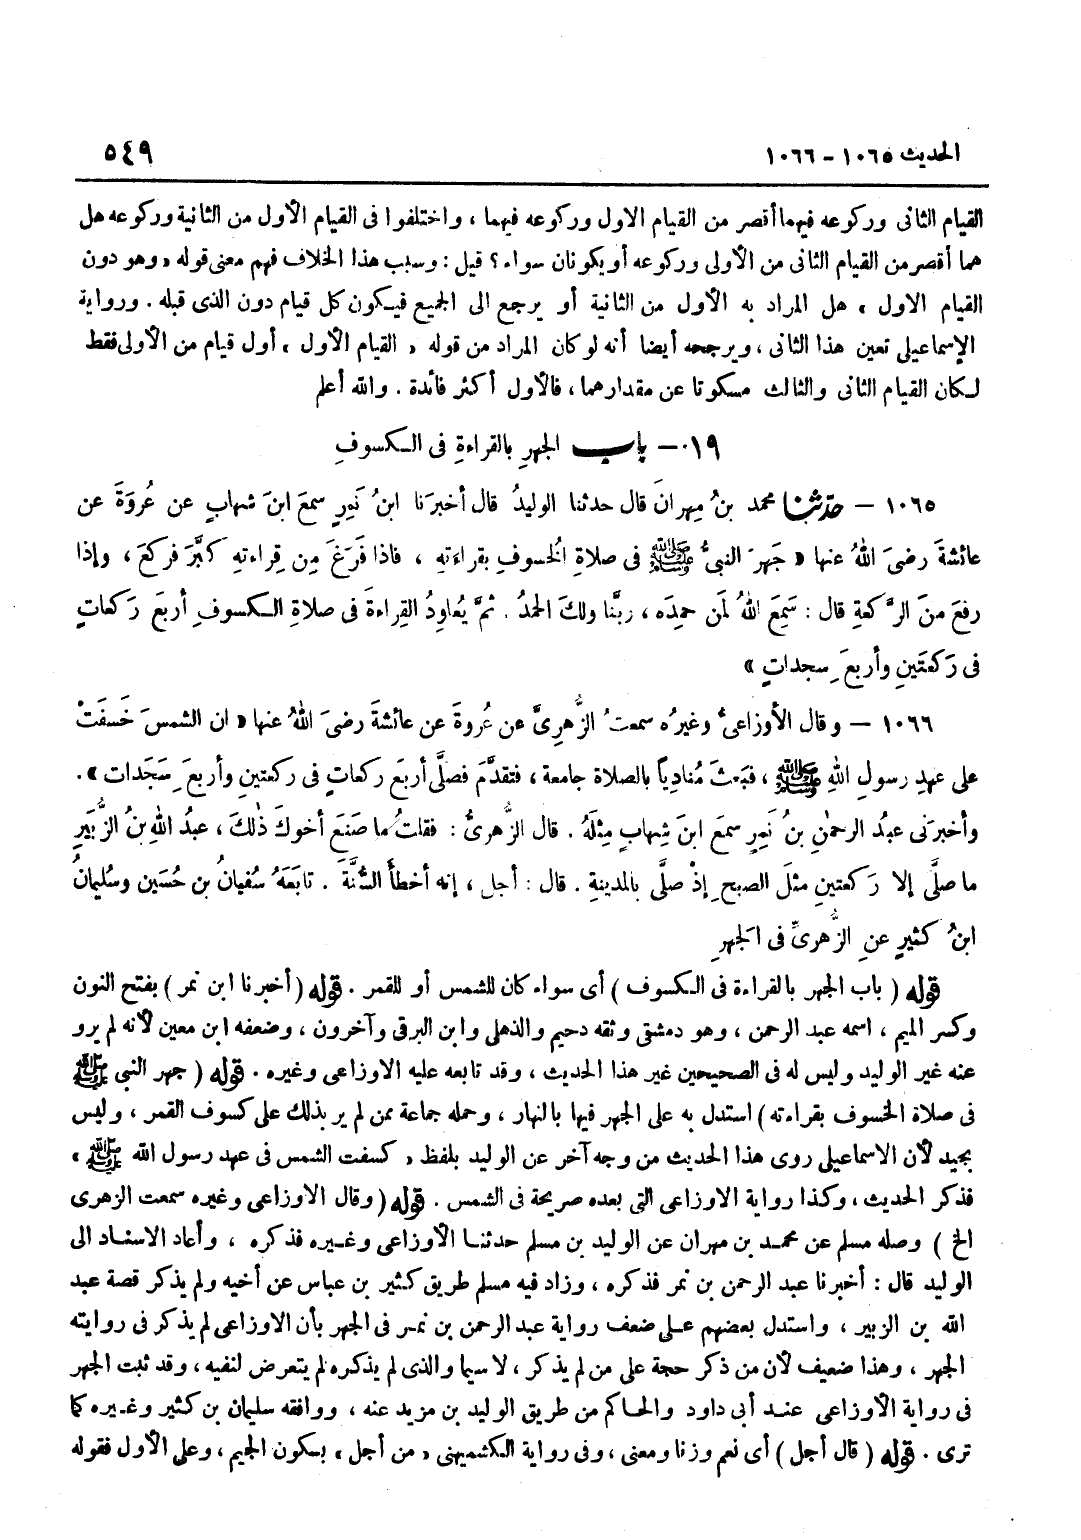 الحديث ١٠٦٥ - ١٠٦٦ ٥٤٩
القيام الثانى وركوعه فيهما أقصر من القيام الاول وركوعه فيهما ، واختلفوا فى القيام الأول من الثانية وركوعه هل
هما أقصر من القيام الثانى من الأولى وركوعه أو يكونان سواء ؟ قيل : وسبب هذا الخلاف فهم معنى قوله « وهو دون
القيام الاول » هل المراد به الأول من الثانية أو يرجع الى الجميع فيكون كل قيام دون الذى قبله . ورواية
الإسماعيلى تعين هذا الثانى ، ويرجحه أيضا أنه لو كان المراد من قوله « القيام الأول » أول قيام من الأولى فقط
لكان القيام الثانى والثالث مسكوتا عن مقدارهما ، فالأول أكثر فائدة . والله أعلم
١٩ - باب الجهرِ بالقراءةِ فى الكسوفِ
١٠٦٥ - حدّثنا محمد بنُ مِهرانَ قال حدثنا الوليدُ قال أخبرَنا ابنُ نَمِرٍ سمعَ ابنَ شهابٍ عن عُروَةَ عن
عائشةَ رضىَ اللهُ عنها « جَهرَ النبىُّ ﷺ فى صلاةِ الخُسوفِ بقراءَتهِ ، فاذا فَرَغَ مِن قِراءتهِ كبَّرَ فركعَ ، وإذا
رفعَ منَ الرَّكعةِ قال : سَمِعَ اللهُ لمَن حمِدَه ، ربَّنا ولكَ الحمدُ . ثمَّ يُعاوِدُ القِراءةَ فى صلاةِ الكسوفِ أربعَ رَكعاتٍ
فى رَكعَتَينِ وأربعَ سجداتٍ »
١٠٦٦ - وقال الأوزاعىُّ وغيرُه سمعتُ الزُّهرِىَّ عن عُروةَ عن عائشةَ رضىَ اللهُ عنها « ان الشمسَ خَسفَتْ
على عهدِ رسولِ اللهِ ﷺ ، فبَعثَ مُنادِياً بالصلاة جامعة ، فتقدَّمَ فصلَّى أربعَ ركعاتٍ فى ركعتينِ وأربعَ سَجَدات » .
وأخبرَنى عبدُ الرحمٰنِ بنُ نَمِرٍ سمعَ ابنَ شِهابٍ مِثلَهُ . قال الزُّهرىُّ : فقلتُ ما صَنَعَ أخوكَ ذٰلكَ ، عبدُ اللهِ بنُ الزُّبَيرِ
ما صلَّى إلا رَكعتينِ مثلَ الصبحِ إذْ صلَّى بالمدينةِ . قال : أجل ، إنه أخطأَ السُّنَّةَ . تابَعَهُ سُفيانُ بن حُسَين وسُليمانُ
ابنُ كثيرٍ عنِ الزُّهرىِّ فى الجَهرِ
قوله ( باب الجهر بالقراءة فى الكسوف ) أى سواء كان للشمس أو للقمر . قوله ( أخبرنا ابن نمر ) بفتح النون
وكسر الميم ، اسمه عبد الرحمن ، وهو دمشقى وثقه دحيم والذهلى وابن البرقى وآخرون ، وضعفه ابن معين لأنه لم يرو
عنه غير الوليد وليس له فى الصحيحين غير هذا الحديث ، وقد تابعه عليه الاوزاعى وغيره . قوله ( جهر النبى ﷺ
فى صلاة الخسوف بقراءته ) استدل به على الجهر فيها بالنهار ، وحمله جماعة ممن لم ير بذلك على كسوف القمر ، وليس
بجيد لأن الاسماعيلى روى هذا الحديث من وجه آخر عن الوليد بلفظ « كسفت الشمس فى عهد رسول الله ﷺ »
فذكر الحديث ، وكذا رواية الاوزاعى التى بعده صريحة فى الشمس . قوله ( وقال الاوزاعى وغيره سمعت الزهرى
الخ ) وصله مسلم عن محمد بن مهران عن الوليد بن مسلم حدثنا الأوزاعى وغيره فذكره ، وأعاد الاسناد الى
الوليد قال : أخبرنا عبد الرحمن بن نمر فذكره ، وزاد فيه مسلم طريق كثير بن عباس عن أخيه ولم يذكر قصة عبد
الله بن الزبير ، واستدل بعضهم على ضعف رواية عبد الرحمن بن نمر فى الجهر بأن الاوزاعى لم يذكر فى روايته
الجهر ، وهذا ضعيف لأن من ذكر حجة على من لم يذكر ، لا سيما والذى لم يذكره لم يتعرض لنفيه ، وقد ثبت الجهر
فى رواية الأوزاعى عند أبى داود والحاكم من طريق الوليد بن مزيد عنه ، ووافقه سليمان بن كثير وغيره كما
ترى . قوله ( قال أجل ) أى نعم وزنا ومعنى ، وفى رواية الكشميهنى « من أجل » بسكون الجيم ، وعلى الأول فقوله